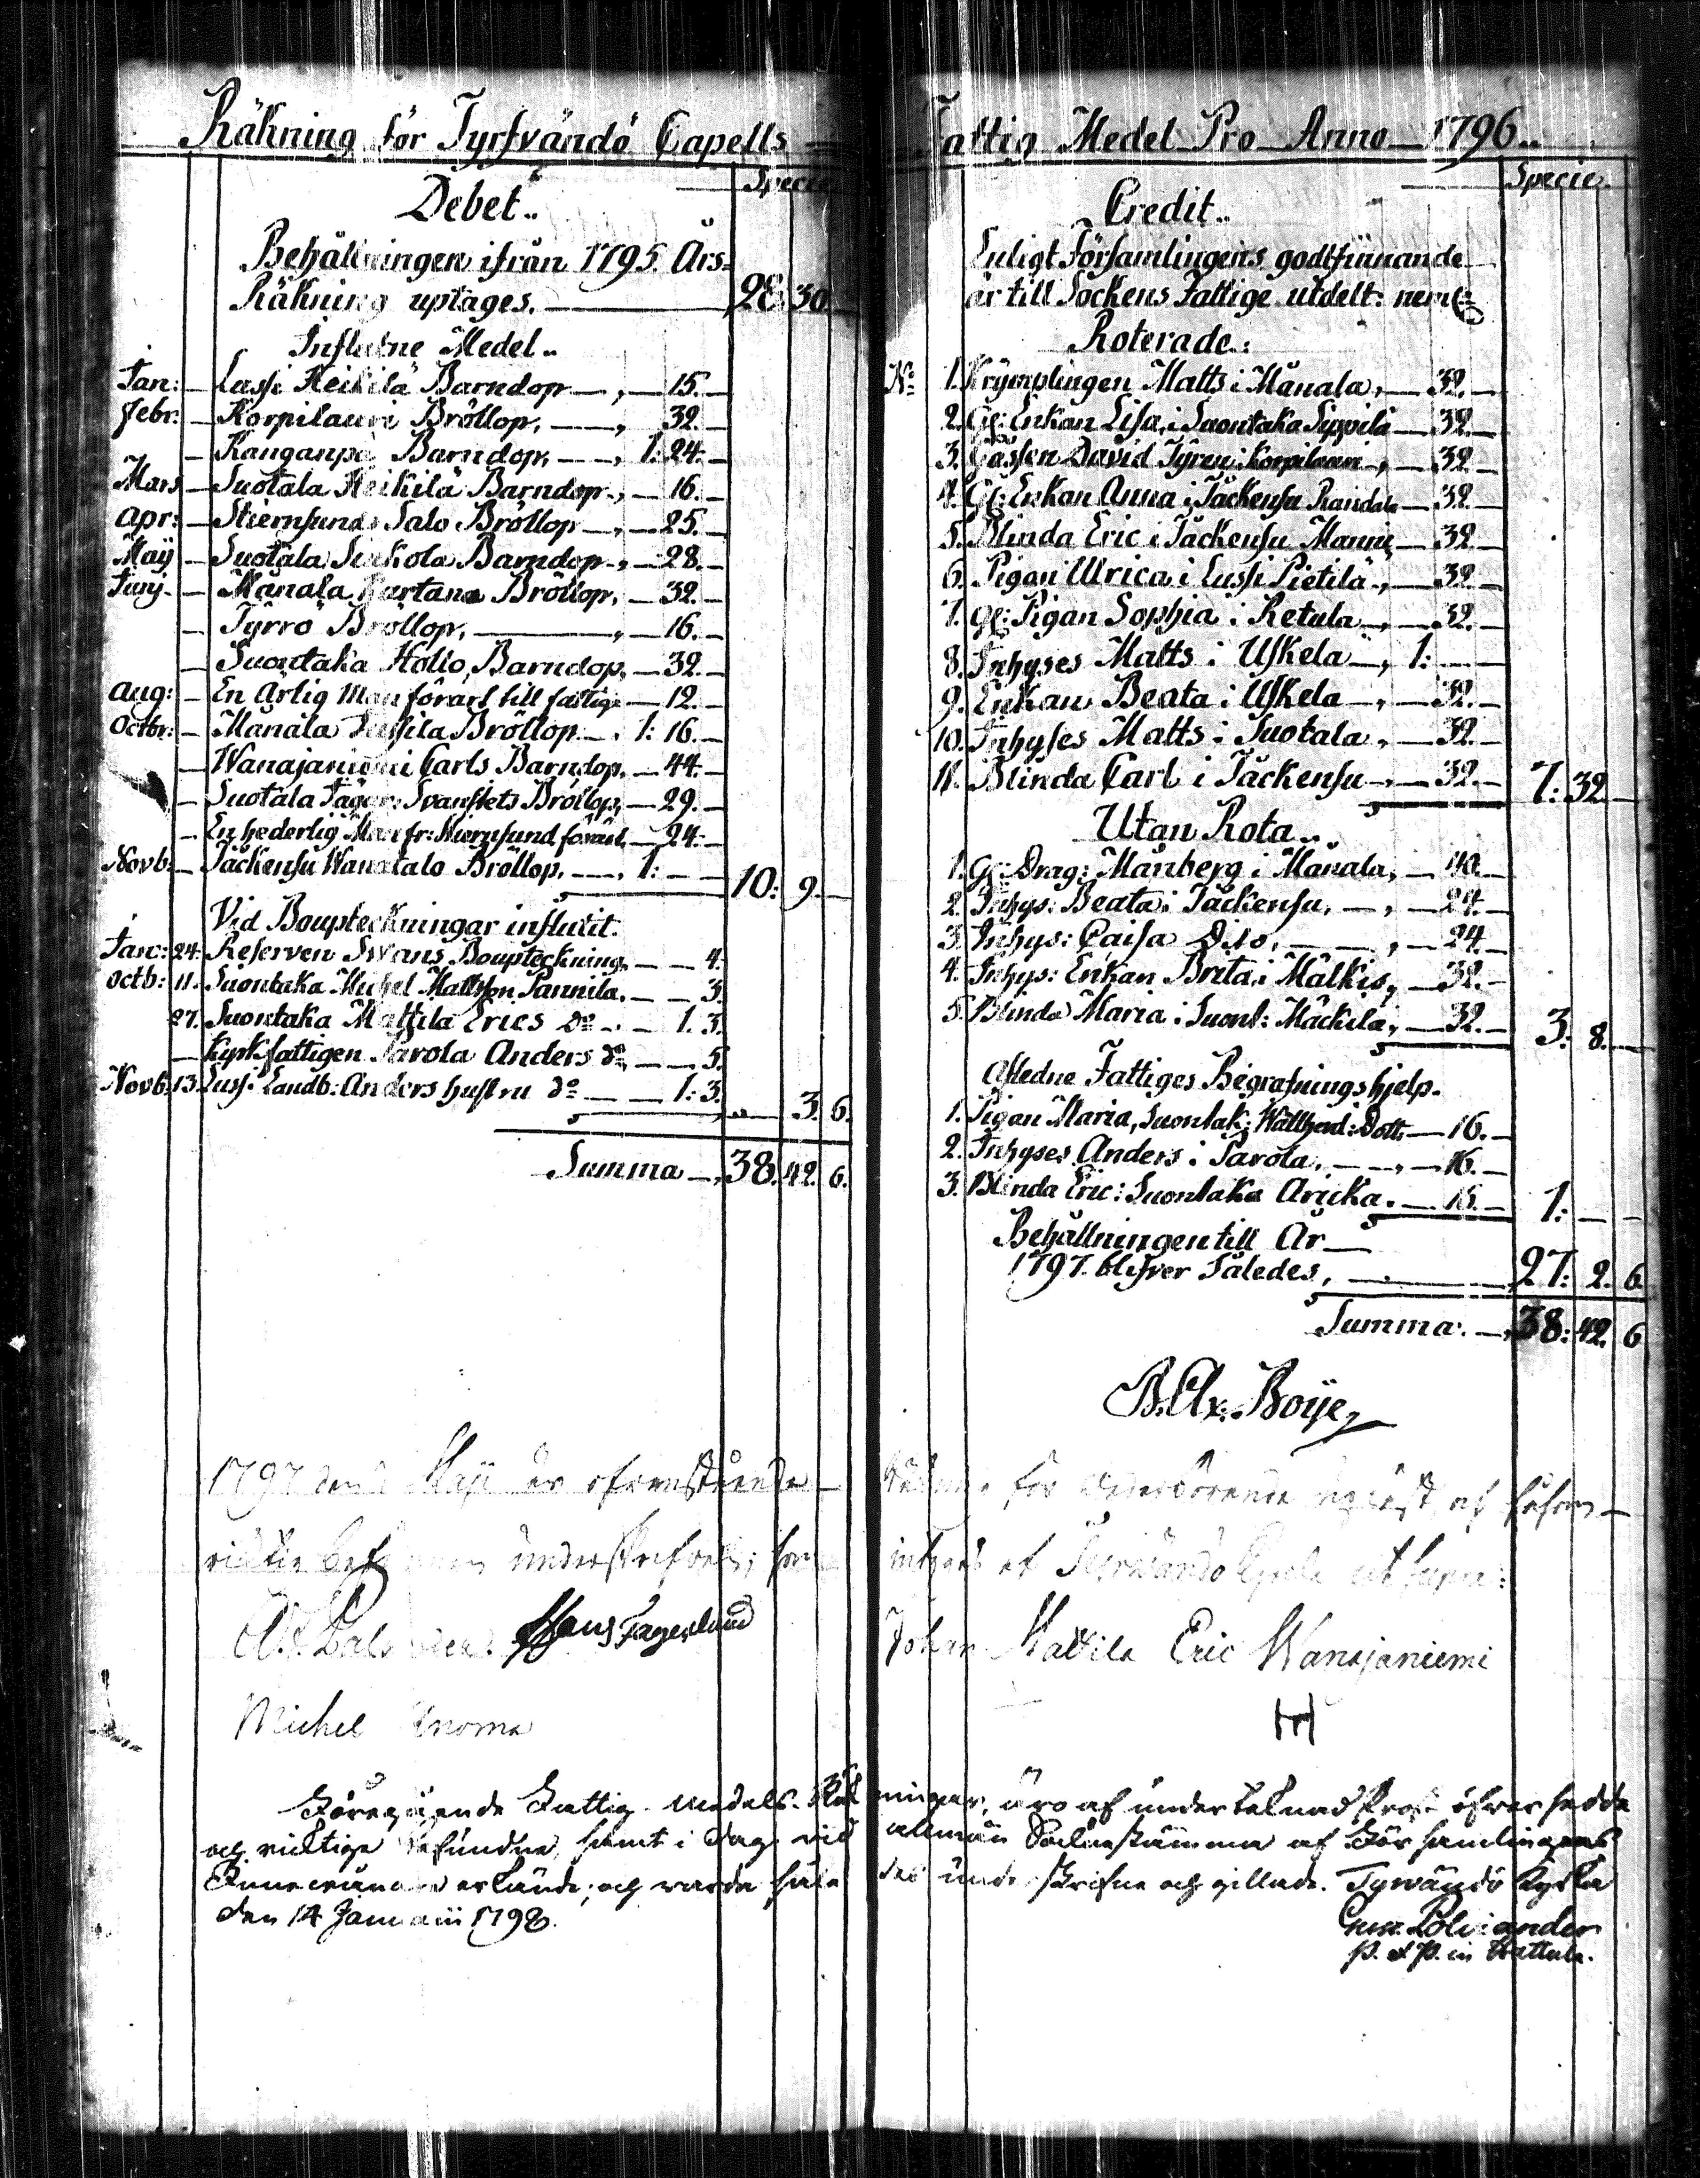 Räkning för Tyrfvändö Capells Fattig Medel Pro Anno 1796..
Specie
Debet..
Behållningen ifrån 1795. Års-
Räkning uptages. 28: 30.
Influtne Medel..
Jan: Lussi Heikilä Barndop 15.
Febr: Korpilauri Bröllop, 32.
Kanganpä Barndop, 1: 24.
Mars Suotala Heikilä Barndop, 16.
Apr: Stiernsunds Salo Bröllop 25.
Maÿ Suotala Sinkola Barndop, 28.
Junj Mänala Bröllop, 32.
Tyrrö Bröllop, 16.
Suontaka Hollo, Barndop, 32.
Aug: En Ärlig Man förärt till fattige 12.
Octbr: Mänala Bröllop 1: 16.
Wanajaniemi Carls Barndop, 44.
Suotala Jägar: Svansets Bröllop, 29.
En hederlig Man fr: Stiernsund förärt 24.
Novb: Jäckensu Wanatalo Bröllop, 1: 10: 9.
Vid Boupteckningar influtit.
24. Reserven Svans Boupteckning, 4.
Octb: 11. Suontaka Michel Mattsson Pannila. 3.
27. Suontaka Mattila Erics do 1. 3.
Kyrkfattigen Parola Anders do 5.
Novb. 13. Lussi Landb: Anders hustru do 1: 3. 3. 6.
Summa 38. 42. 6.
Specie.
Credit..
Enligt Församlingens godtfinnande
är till Sockens Fattige utdelt: neml:
Roterade:
No 1. Krymplingen Matts i Mänala, 32.
2. Gl: Enkan Lisa, i Suontaka Sippilä 32.
3. Gossen David Tyren i Korpilauri, 32.
4. Gl: Enkan Anna i Jäckensu Randala 32.
5. Blinda Eric i Jäckensu Manni 32.
6. Pigan Ulrica i Lussi Pietilä, 32.
7. Gl: Pigan Sophia i Retula, 32.
8. Inhyses Matts i Uskela, 1:
9. Enkan Beata i Uskela, 32.
10. Inhyses Matts i Suotala, 32.
11. Blinda Carl i Jäckensu, 32. 7: 32.
Utan Rota..
1. Gl: Drag: Månberg i Mänala, 40.
2. Inhys: Beata i Jäckensu, 24.
3. Inhys: Caisa Dito, 24.
4. Inhys: Enkan Brita i Mälkis, 32.
5. Blinda Maria i Suont: Mäckilä, 32. 3. 8.
Afledne Fattiges Begrafnings hjelp.
1. Pigan Maria, Suontak: Dott: 16.
2. Inhyses Anders i Parola, 16.
3. Blinda Eric i Suontaka 16. 1:
Behållningen till År
1797. blifver Således, 27: 2. 6
Summa 38: 42. 6
B. Ax: Boije
1797 den Maji är ofvanstående Räkning för vederbörande upläst af
riktig befunnen underskrifves; som intygas af Tyrvändö
Hans Fagerlund Johan Mattila Eric Wanajaniemi
Michel
H
Föregående Fattig Medels Räkningar, äro af undertecknad Prost öfversedde
och riktige befundne, samt i dag vid allmän Sockenstämma af Församlingens
erkände; och varda således underskrifne och gillade. Tyrvändö Kyrka
den 14 Januarii 1798.
Poliander
P. & P. in Hattula.